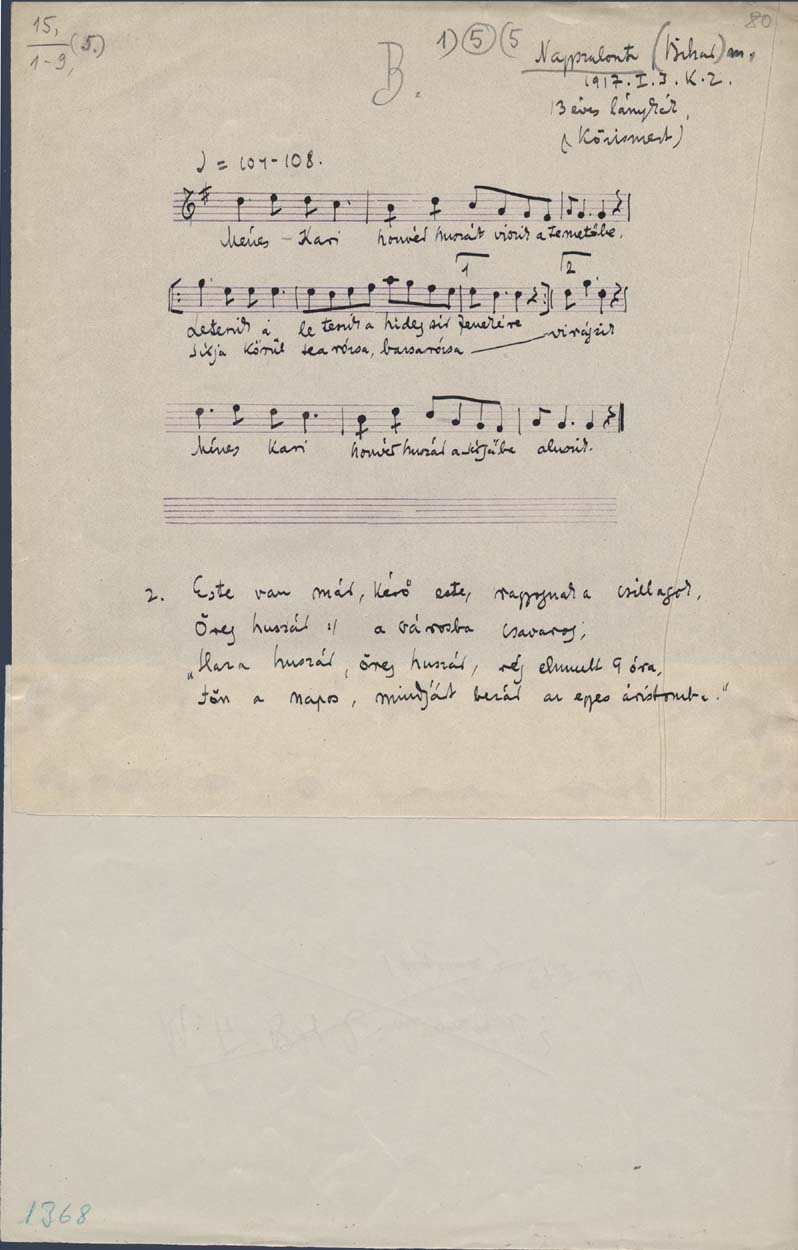 15,
1-9,
(5.)
80
B.
1) 5 (5
Nagyszalonta (Bihar) m.
1917. I. 3. K. Z.
13 éves lánykák,
(Közismert)
♩ = 104-108.
Ménes - Kari honvéd huszárt viszik a temetőbe,
1 2
Leteszik á le teszik a hideg sír fenekére virágzik
Sírja körül tearózsa, bazsarózsa
Ménes Kari honvéd huszár a sírjába aluszik.
2. Este van már, késő este, ragyognak a csillagok,
Öreg huszár :/ a városba csavarog;
„Haza huszár, öreg huszár, rég elmult 9 óra,
Jön a napos, mindjárt bezár az egyes áristomba."
1368